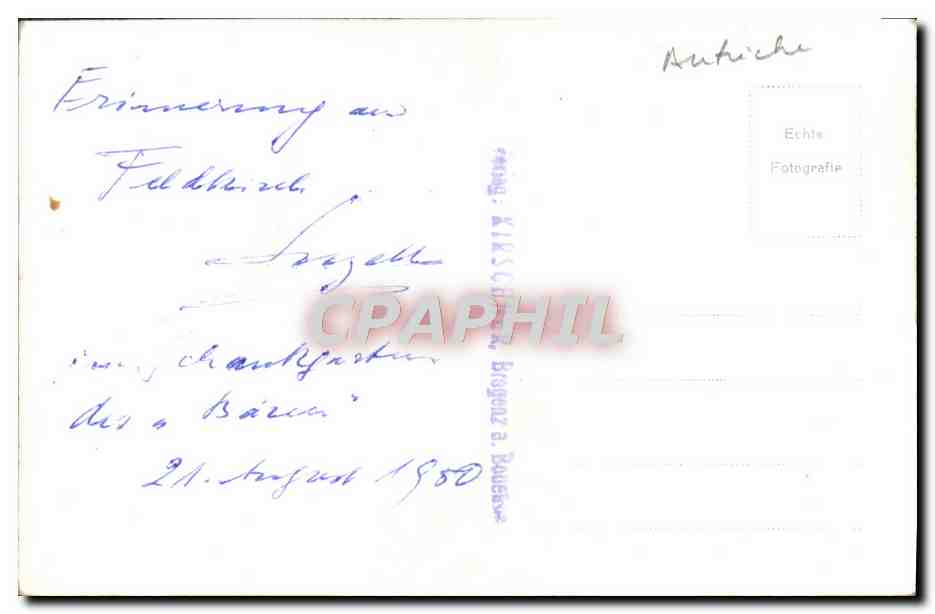 Autriche
Erinnerung an
Feldkirch
im Schankgarten
des „Bären"
21. August 1950
Echte
Fotografie
Bregenz a. Bodensee
CPAPHIL